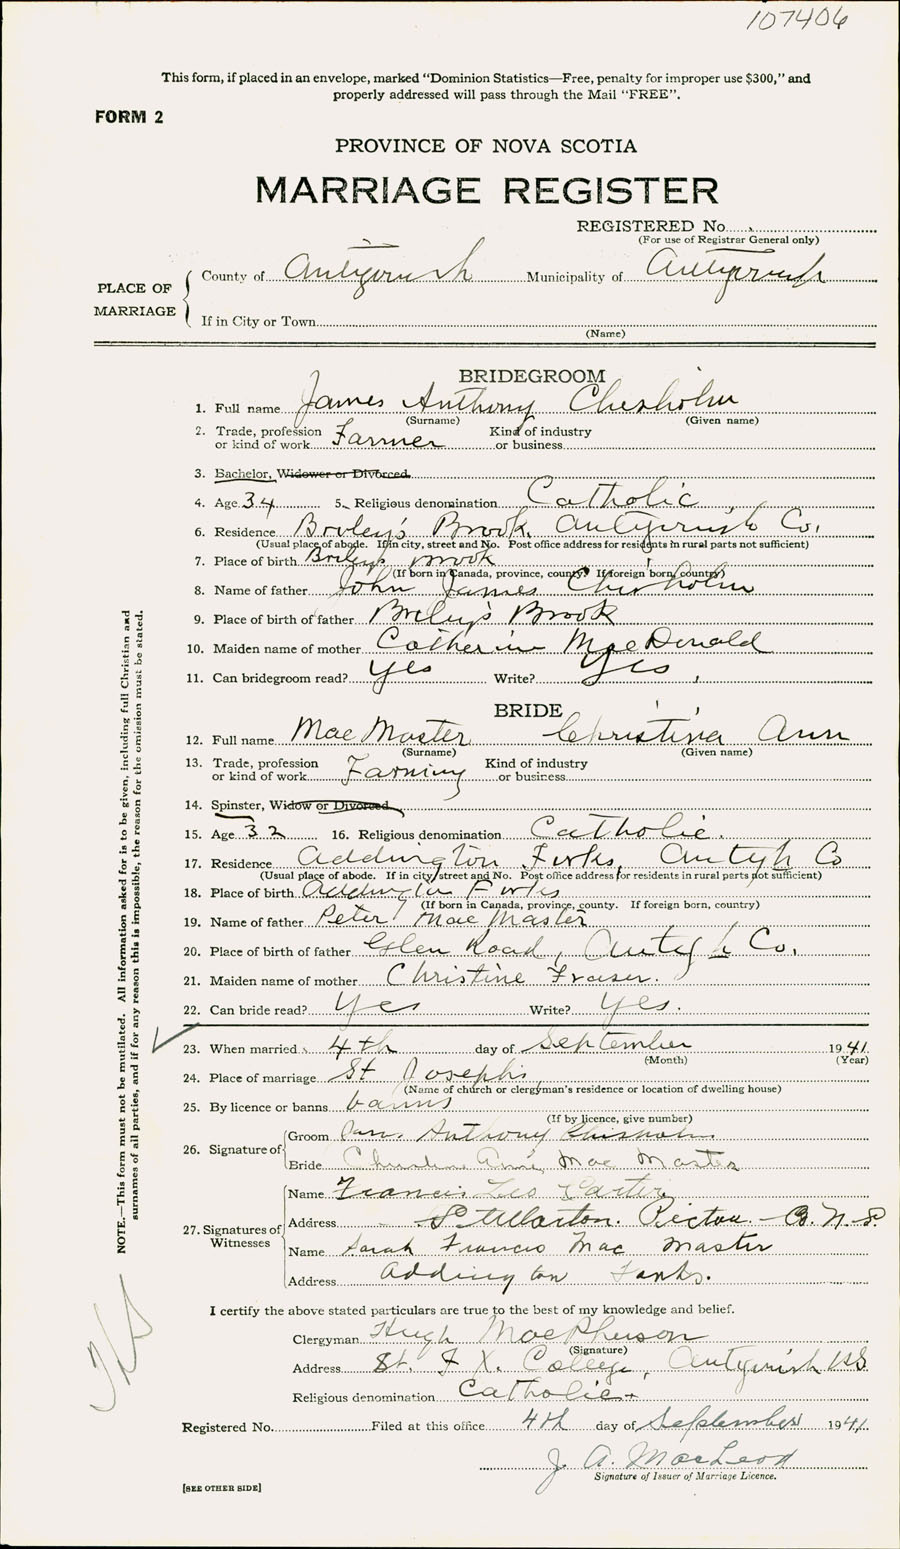 107406
This form, if placed in an envelope, marked “Dominion Statistics—Free, penalty for improper use $300,” and
properly addressed will pass through the Mail “FREE”.
FORM 2
PROVINCE OF NOVA SCOTIA
MARRIAGE REGISTER
REGISTERED No.
(For use of Registrar General only)
PLACE OF MARRIAGE
County of Antigonish Municipality of Antigonish
If in City or Town
(Name)
BRIDEGROOM
1. Full name James Anthony Chisholm
(Surname) (Given name)
2. Trade, profession or kind of work Farmer Kind of industry or business
3. Bachelor, Widower or Divorced
4. Age 34 5. Religious denomination Catholic
6. Residence Briley's Brook, Antigonish Co.
(Usual place of abode. If in city, street and No. Post office address for residents in rural parts not sufficient)
7. Place of birth Briley's Brook
(If born in Canada, province, county. If foreign born, country)
8. Name of father John James Chisholm
9. Place of birth of father Briley's Brook
10. Maiden name of mother Catherine MacDonald
11. Can bridegroom read? Yes Write? Yes
BRIDE
12. Full name MacMaster Christina Ann
(Surname) (Given name)
13. Trade, profession or kind of work Farming Kind of industry or business
14. Spinster, Widow or Divorced
15. Age 32 16. Religious denomination Catholic.
17. Residence Addington Forks, Antgh Co
(Usual place of abode. If in city, street and No. Post office address for residents in rural parts not sufficient)
18. Place of birth Addington Forks
(If born in Canada, province, county. If foreign born, country)
19. Name of father Peter MacMaster
20. Place of birth of father Glen Road, Antgh Co.
21. Maiden name of mother Christine Fraser.
22. Can bride read? Yes Write? Yes.
23. When married 4th day of September 1941
(Month) (Year)
24. Place of marriage St Josephs
(Name of church or clergyman's residence or location of dwelling house)
25. By licence or banns banns
(If by licence, give number)
26. Signature of
Groom Jas. Anthony Chisholm
Bride Christina Ann MacMaster
27. Signatures of Witnesses
Name Francis Leo Carter
Address Pictou
Name Sarah Francis MacMaster
Address Addington Forks.
I certify the above stated particulars are true to the best of my knowledge and belief.
Clergyman Hugh MacPherson
(Signature)
Address St. F X. College, Antigonish NS
Religious denomination Catholic
Registered No. Filed at this office 4th day of September 1941
J. A. MacLeod
Signature of Issuer of Marriage Licence.
[SEE OTHER SIDE]
NOTE.—This form must not be mutilated. All information asked for is to be given, including full Christian and
surnames of all parties, and if for any reason this is impossible, the reason for the omission must be stated.